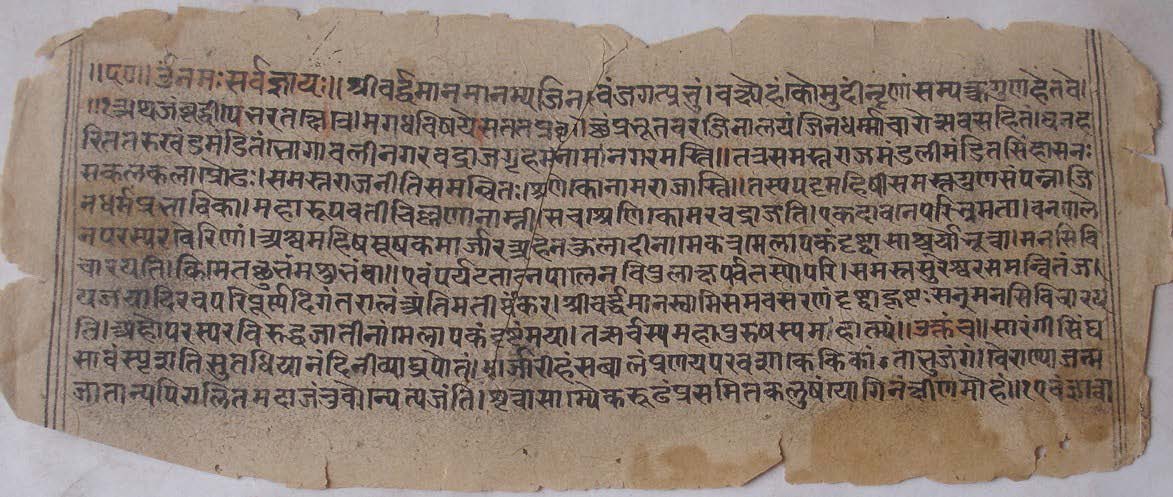 ॥ए५०॥ र्उनमः सर्वज्ञाय॥ श्रीवर्द्धमानमानम्य जिनदेवं जगत्प्रभुं। वक्ष्येहं कौमुदीं नृणां सम्यक्त्वगुणहेतवे।
॥१अथ जंबूद्वीपे भरतक्षेत्रे। मगधविषये प्रभूतवरजिनालयं जिनधर्माचारोत्सवसहितं। घनह
रिततरुखंडमंडितं। भोगावलीनगरवद्राजगृहं नाम नगरमस्ति॥ तत्र समस्तराजमंडलीमंडितसिंहासनः
सकलकलाप्रौढः। समस्तराजनीतिसमन्वितः। श्रेणिको नाम राजास्ति॥ तस्य पट्टमहिषी समस्तगुणसंपन्ना जि
नधर्मप्रभाविका। महारूपवती चेल्लणानाम्नी। स च श्रेणिको अमरवद्राजति। एकदा वने परिभ्रमता। वनपाले
न परस्परवैरिणां। अश्वमहिषमूषकमार्जारअहिनकुलादीनां मेलापकं दृष्ट्वा साश्चर्यो भूत्वा। मनसि वि
चारयति। किमेतच्छुभमशुभं वा॥ एवं पर्यटता वनपालेन विपुलाचलपर्वतस्योपरि। समस्तसुरेश्वरसमन्वितं ज।
यजयादिरवपरिपूर्णदिगंतरालं श्रीवर्द्धमानस्वामिसमवसरणं दृष्ट्वा हृष्टः सन् मनसि विचारय
ति। अहो परस्परविरुद्धजातीनां मेलापकं दृष्टं मया। तत्सर्वस्य महापुरुषस्य माहात्म्यं॥ उक्तं च॥ सारंगी सिंह
सावं स्पृशति सुतधिया नंदिनी व्याघ्रपोतं। मार्जारी हंसबालं प्रणयपरवशा केकिकांता भुजंगं। वैराण्याजन्म
जातान्यपि गलितमदा जंतवोन्ये त्यजंति। श्रुत्वा साम्यैकरूढं प्रसमितकलुषं योगिनं क्षीणमोहं॥१ एवं ज्ञात्वा